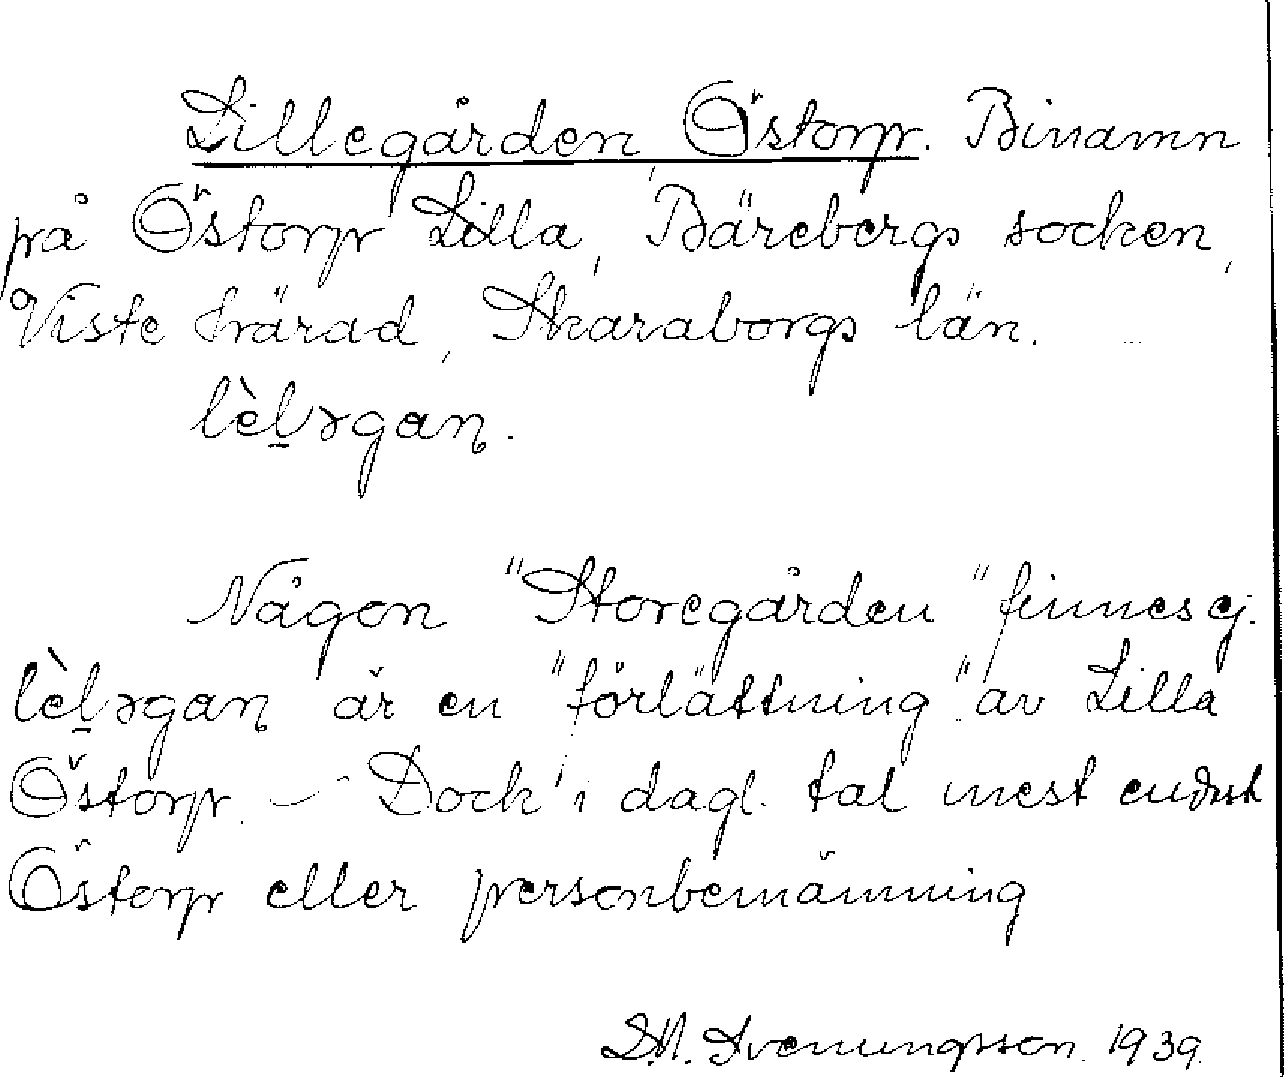 Lillegården, Östorp. Binamn
på Östorp Lilla, Bärebergs socken,
Viste härad, Skaraborgs län.
lèl̠ɘgan.
Någon "Storegården" finnes ej.
lèl̠ɘgan är en "förlättning" av Lilla
Östorp. – Dock i dagl. tal mest endast
Östorp eller personbenämning
Svenungsson. 1939.